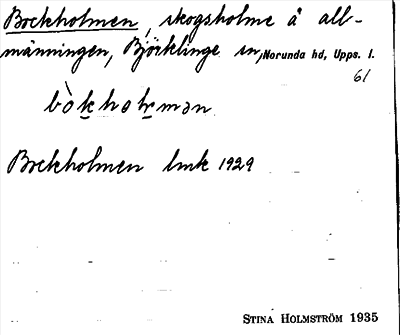 Bockholmen, skogsholme å all-
männingen, Björklinge sn, Norunda hd, Upps. l.
61
bòkholmən
Bockholmen lmk 1929
STINA HOLMSTRÖM 1935